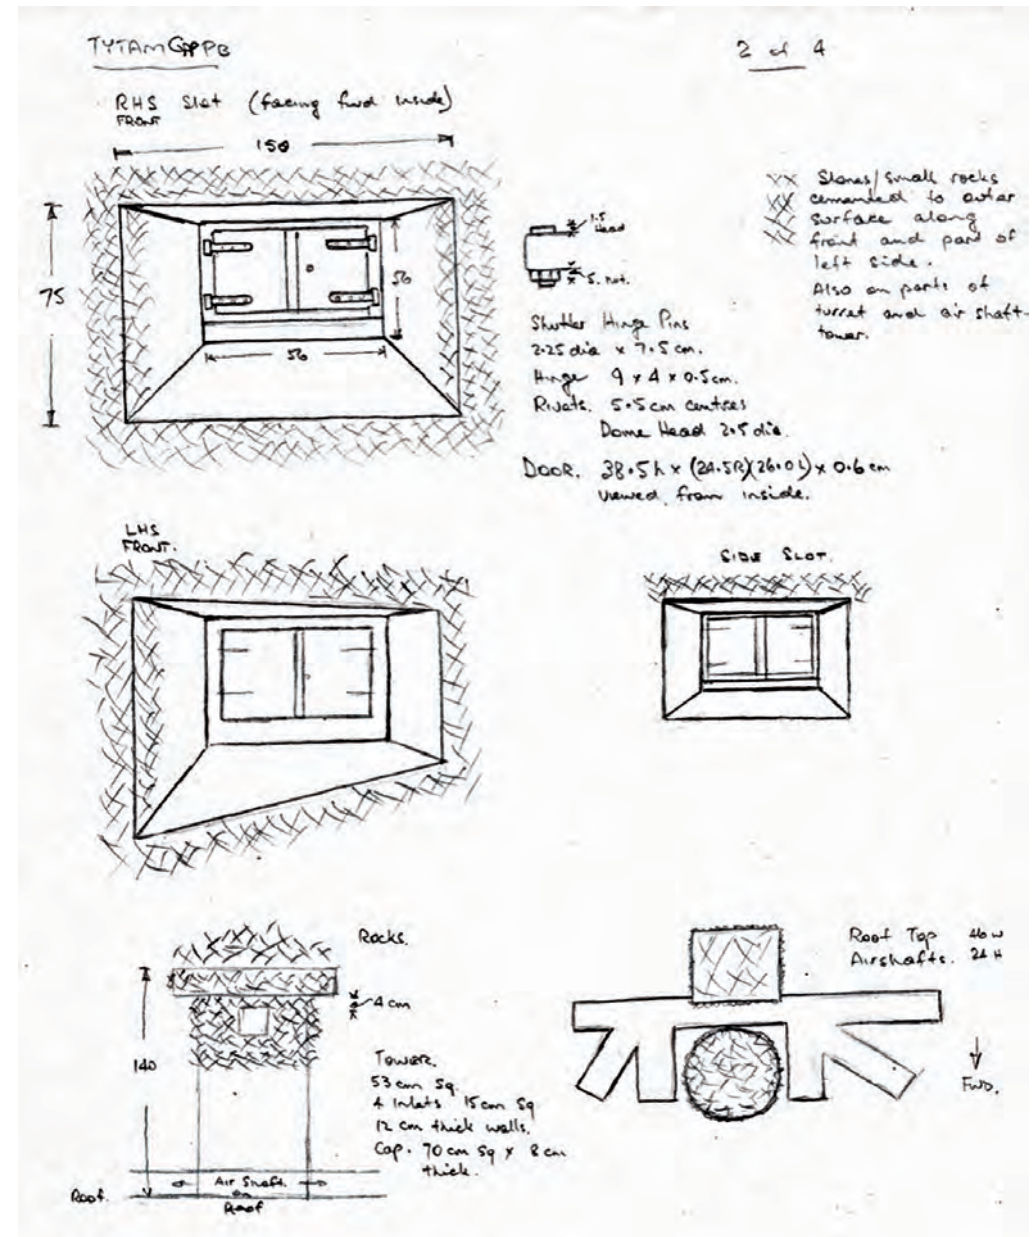 TYTAM GAP PB
2 of 4
RHS Slot (facing fwd inside)
FRONT
150
75
56
56
1.5
Head
5. nut.
Shutter Hinge Pins
2.25 dia x 7.5 cm.
Hinge 9 x 4 x 0.5 cm.
Rivets. 5.5 cm centres
Dome Head 2.5 dia.
DOOR. 38.5 h x (24.5R)(26.0L) x 0.6 cm
viewed from inside.
Stones/small rocks
cemented to outer
surface along
front and part of
left side.
Also on parts of
turret and air shaft
tower.
LHS
FRONT.
SIDE SLOT.
Rocks.
4 cm
140
Tower.
53 cm sq.
4 Inlets 15 cm sq
12 cm thick walls.
Cap. 70 cm sq x 8 cm
thick.
Air Shaft.
on
Roof
Roof.
Roof Top 46 W
Airshafts. 24 H
FWD.